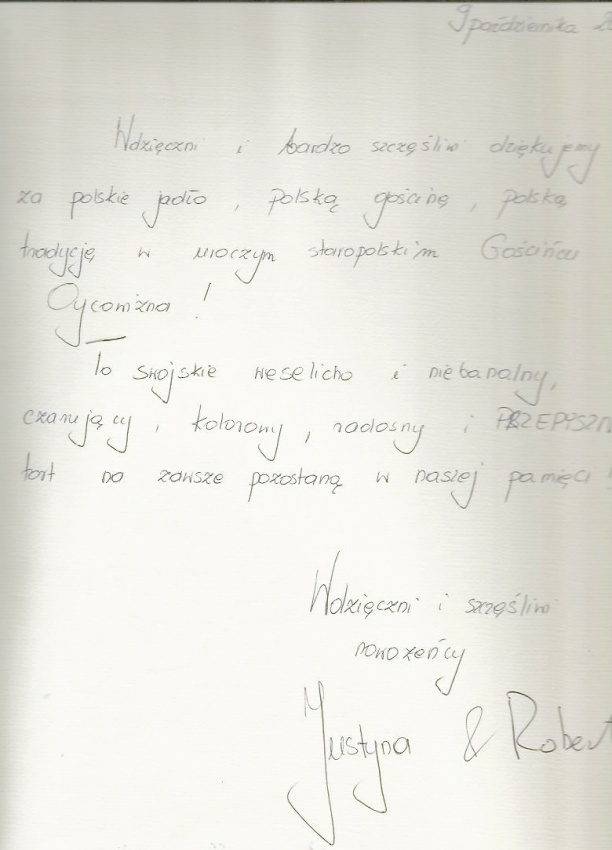 9 października 20
Wdzięczni i bardzo szczęśliwi dziękujemy
za polskie jadło, polską gościnę, polską
tradycję w uroczym staropolskim Gościńcu
Oycowizna!
To swojskie weselicho i niebanalny,
czarujący, kolorowy, radosny i PRZEPYSZN
tort na zawsze pozostaną w naszej pamięci!
Wdzięczni i szczęśliwi
nowożeńcy
Justyna & Robert